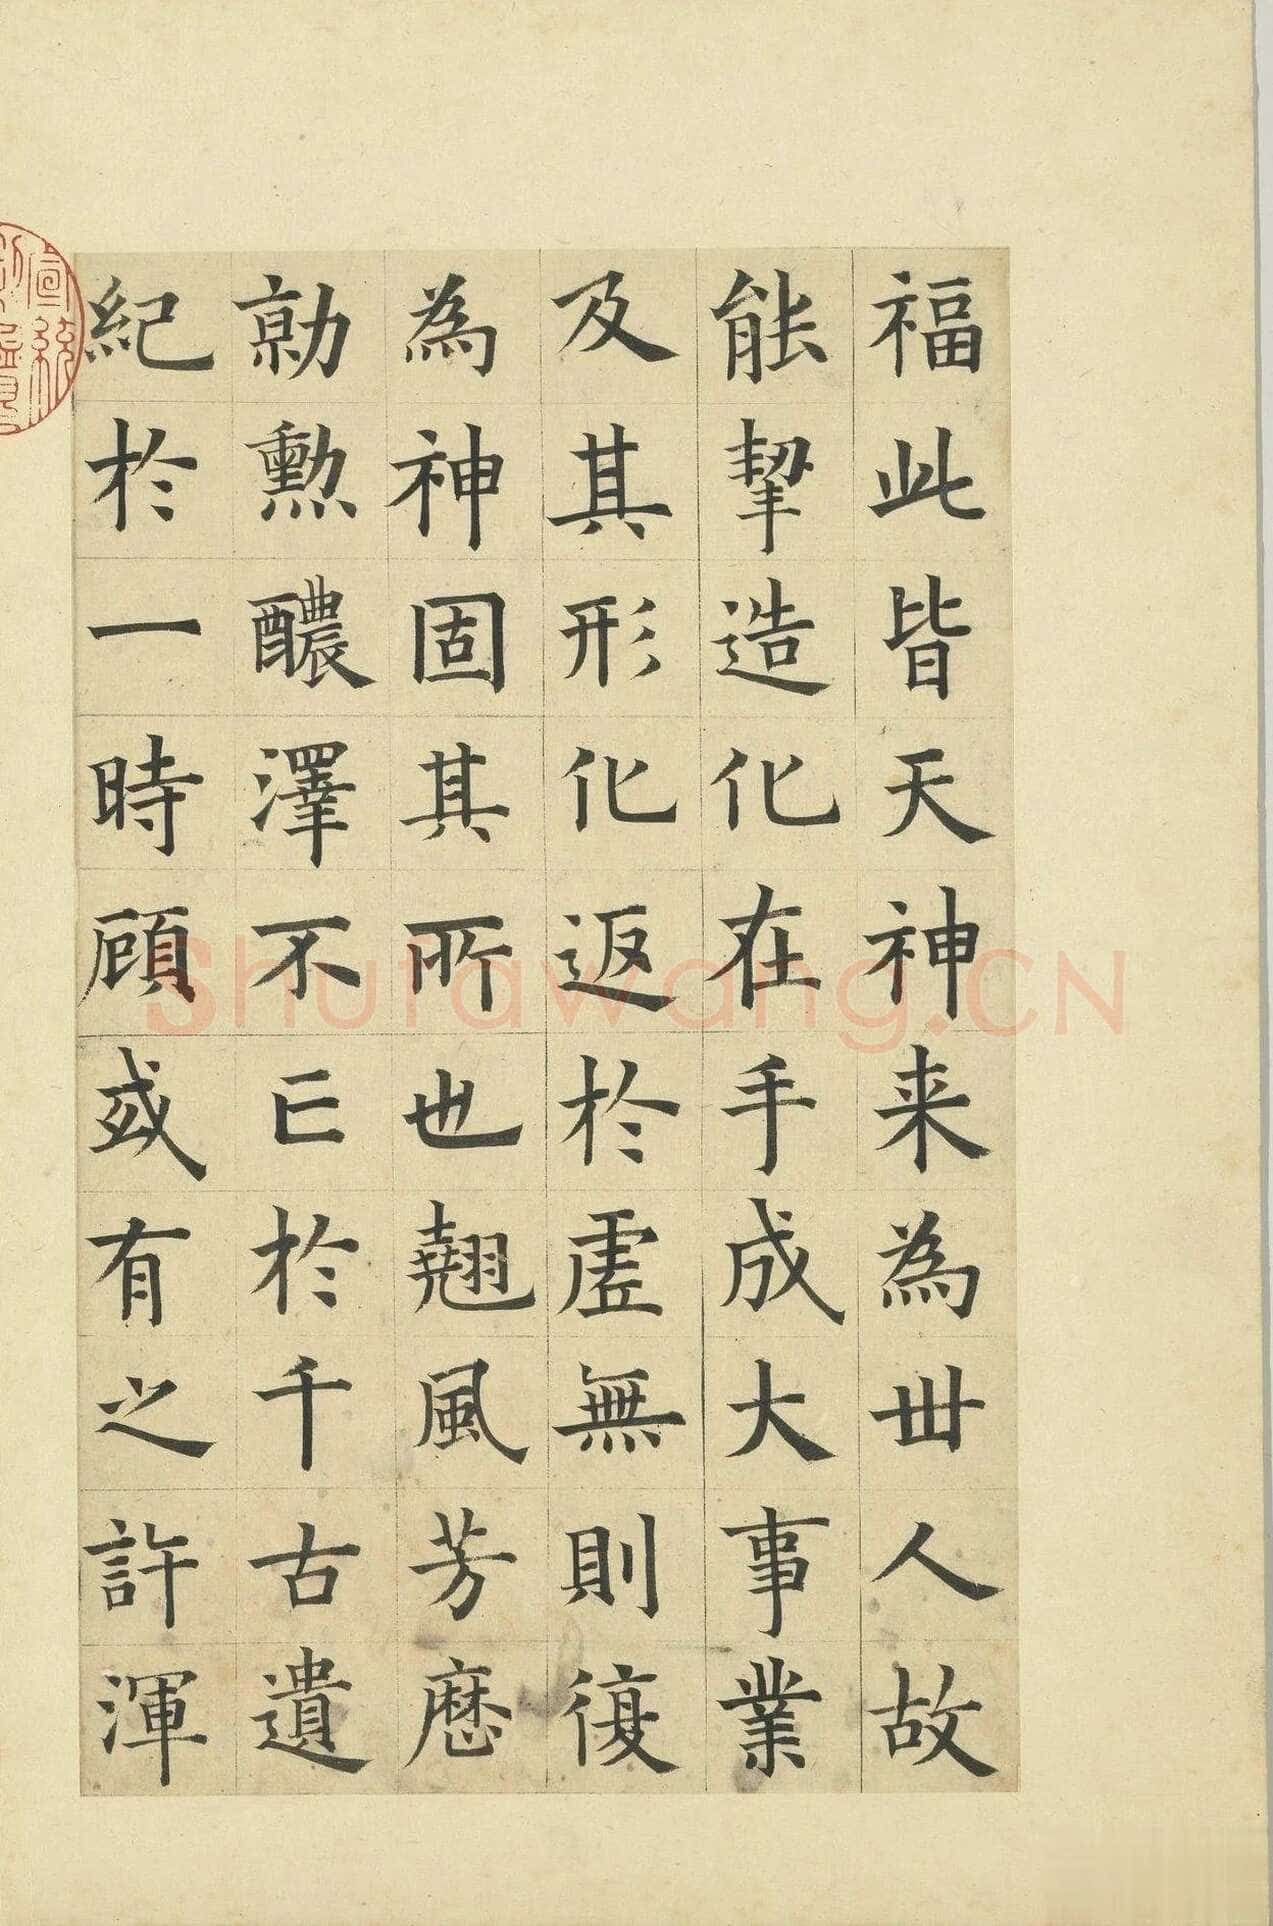 福此皆天神来為丗人故
能挈造化在手成大事業
及其形化返於虗無則復
為神固其所也翹風芳歴
勍勲醲澤不亡於千古遺
紀於一時顧或有之許渾
Shufawang.CN